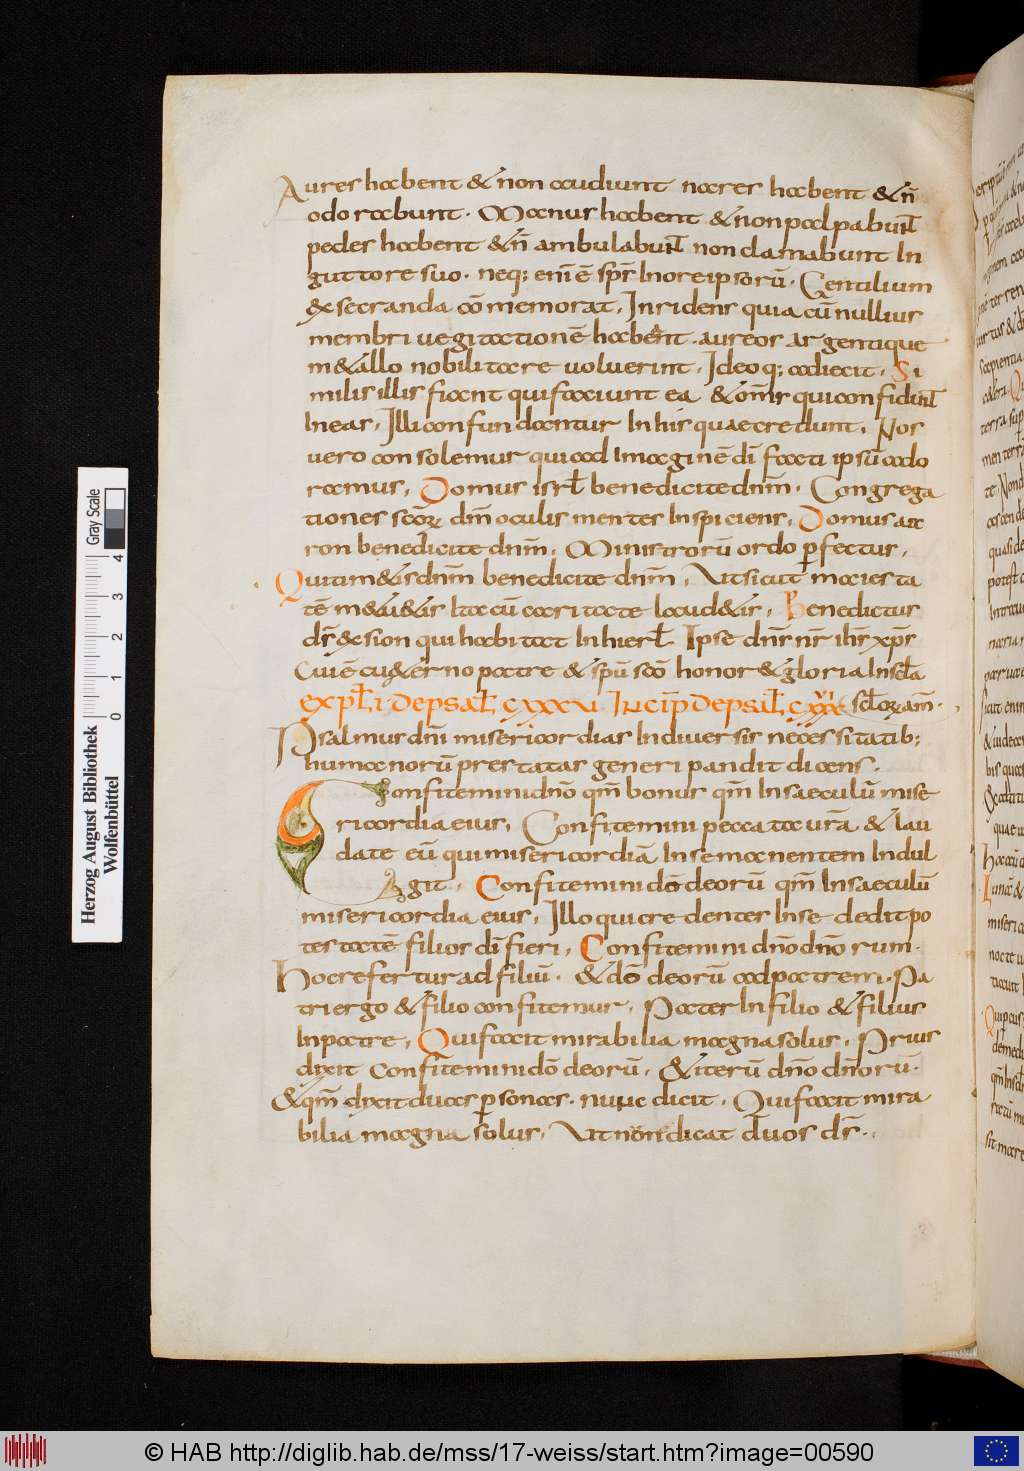 Aures habent & non audiunt nares habent & n̄
odorabunt. Manus habent & non palpabunt
pedes habent & n̄ ambulabunt non clamabunt In
gutture suo. neq; eni ē sps̄ In ore ipsorū. Gentilium
exsecranda cōmemorat, Inridens quia cū nullius
membri uegitationē habent. aureos argentique
m&allo nobilitare uoluerint, Ideoq; adiecit. Si
milis illis fiant qui faciunt ea & om̄s qui confidunt
In eas, Illi confundantur In his quae credunt, Nos
uero consolemur qui ad Imaginē dī facti ipsū ado
ramus, Domus isrl̄ benedicite dnm̄. Congrega
tiones scōrꝝ dm̄ oculis mentes Inspiciens, Domus aa
ron benedicite dnm̄, Ministrorū ordo ꝑfectus,
Qui tim&is dnm̄ benedicite dnm̄, Ut sicut maiesta
tē m&ui&is Ita cū caritate laud&is, Benedictus
ds̄ ex sion qui habitat In hierl̄. Ipse dn̄s nr̄ ihs̄ xps̄
Cui ē cū &erno patre & spū scō honor & gloria In scl̄a
expl̄i de psal̄ cxxxu Incip̄ de psal̄ cxxxui scl̄orꝝ am̄.
Psalmus dnī misericordias In diuersis necessitatib;
humanorū prestatas generi pandit dicens.
Confitemini dnō qm̄ bonus qm̄ In saeculū mise
ricordia eius, Confitemini peccata urā & lau
date eū qui misericordiā In se manentem Indul
git, Confitemini dō deorū qm̄ In saeculū
misericordia eius, Illo qui credentes In se dedit po
testatē filios dī fieri, Confitemini dnō dnōrum.
Hoc refertur ad filiū. & dō deorū ad patrem. Pa
tri ergo & filio confitemur, Pater In filio & filius
In patre, Qui facit mirabilia magna solus, Prius
dixit confitemini dō deorū, & iterū dnō dn̄orū.
& qm̄ dixit duas ꝑsonas. nunc dicit, Qui facit mira
bilia magna solus, Ut non dicat duos ds̄.
Gray Scale
4
3
2
1
0
Herzog August Bibliothek
Wolfenbüttel
© HAB http://diglib.hab.de/mss/17-weiss/start.htm?image=00590